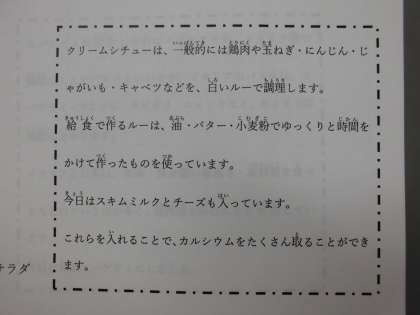 クリームシチューは、一般的には鶏肉や玉ねぎ・にんじん・じ
ゃがいも・キャベツなどを、白いルーで調理します。
給食で作るルーは、油・バター・小麦粉でゆっくりと時間を
かけて作ったものを使っています。
今日はスキムミルクとチーズも入っています。
これらを入れることで、カルシウムをたくさん取ることができ
ます。
テラダ